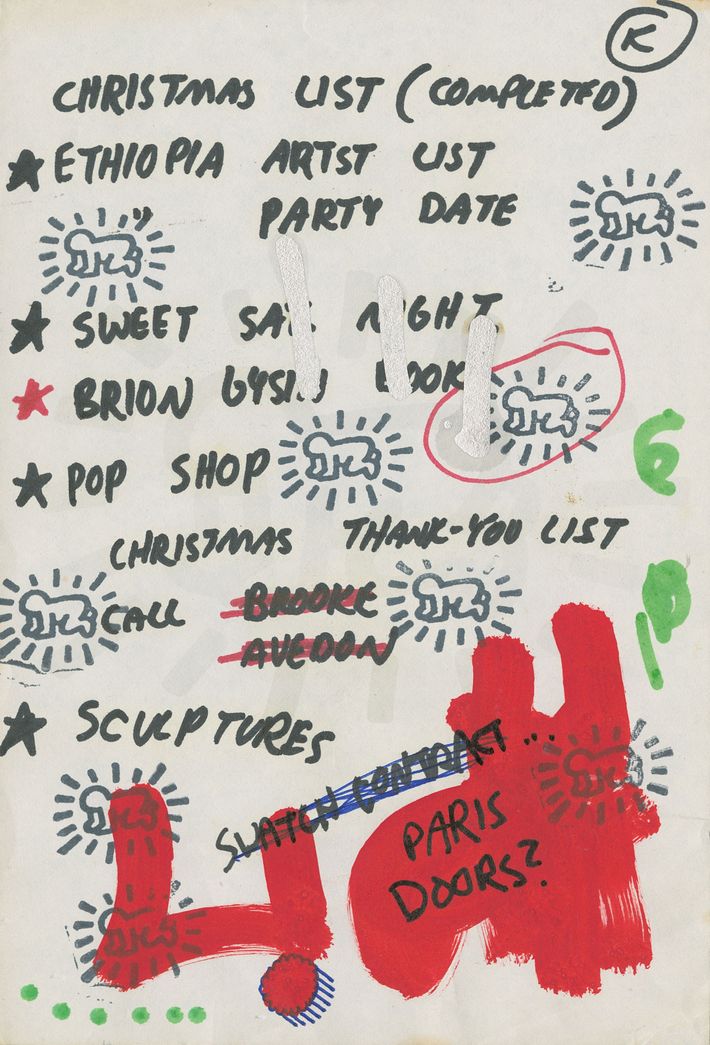 K
CHRISTMAS LIST (COMPLETED)
★ ETHIOPIA ARTST LIST
PARTY DATE
★ SWEET SAT. NIGHT
★ BRION GYSIN BOOK
★ POP SHOP
CHRISTMAS THANK-YOU LIST
CALL BROOKE
AVEDON
★ SCULPTURES
SWATCH CONTRACT...
PARIS
DOORS?